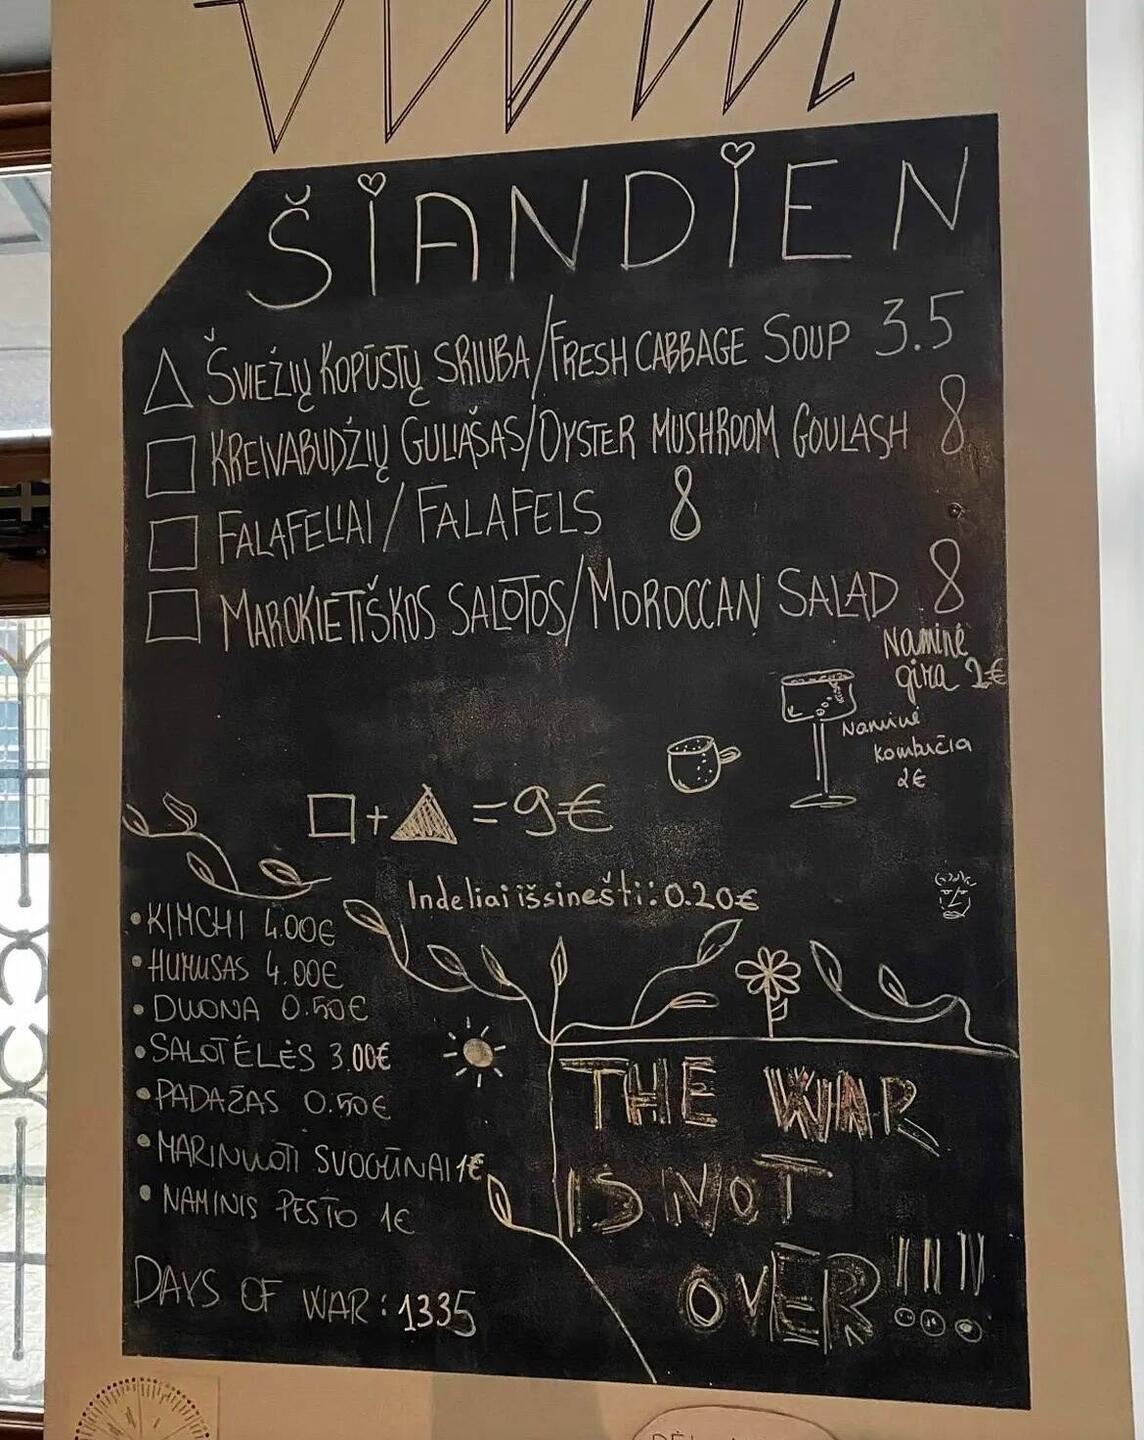 ŠIANDIEN
ŠVIEŽIŲ KOPŪSTŲ SRIUBA/FRESH CABBAGE SOUP 3.5
KREIVABUDŽIŲ GULIAŠAS/OYSTER MUSHROOM GOULASH 8
FALAFELIAI/FALAFELS 8
MAROKIETIŠKOS SALOTOS/MOROCCAN SALAD 8
Naminė
gira 2€
Naminė
kombučia
2€
+ = 9€
Indeliai išsinešti: 0.20€
• KIMCHI 4.00€
• HUMUSAS 4.00€
• DUONA 0.50€
• SALOTĖLĖS 3.00€
• PADAŽAS 0.50€
• MARINUOTI SVOGŪNAI 1€
• NAMINIS PESTO 1€
DAYS OF WAR: 1335
THE WAR
IS NOT
OVER!!!